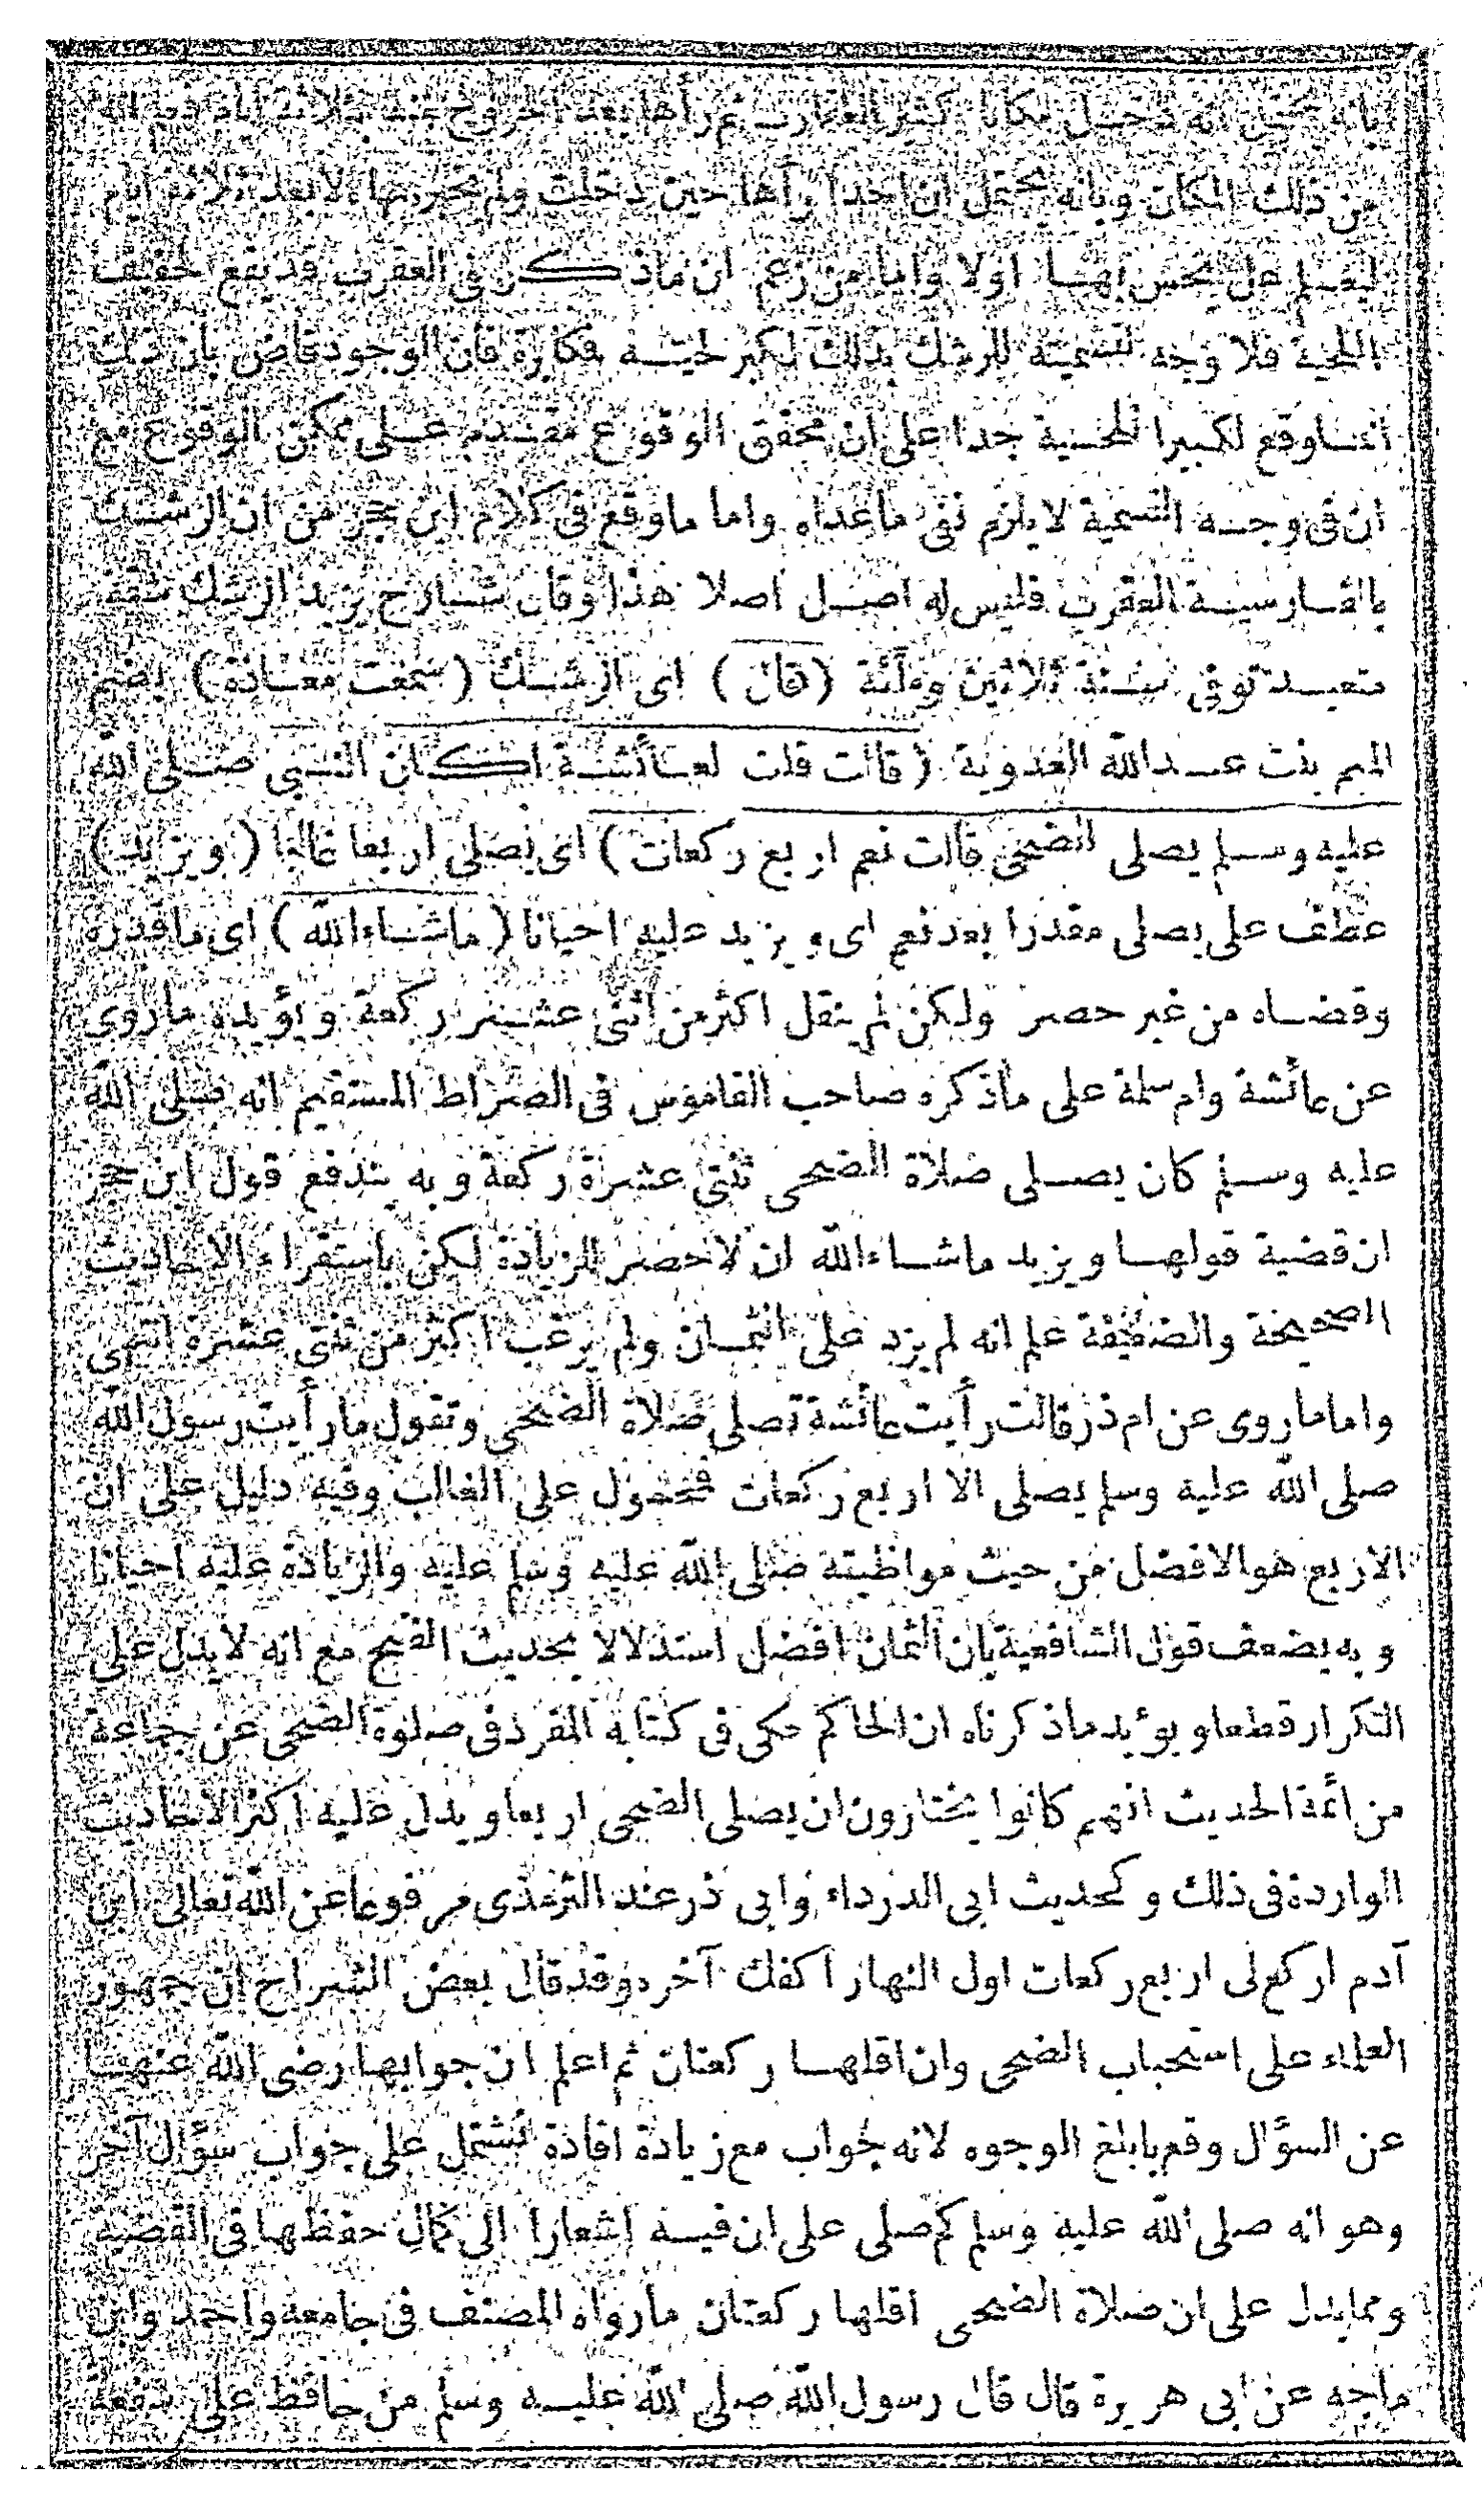 بأنه يحتمل انه دخل مكانا كثير العقارب ثم رآها بعد الخروج منه
من ذلك المكان وبأنه يحتمل ان احدا رآها حين دخلت ولم يخبره بها الا بعد ثلاثة ايام
ليعلم هل يحس بها اولا واما من زعم ان ماذكر فى العقرب قد يقع لخفيف
اللحية فلا وجه لتسمية الرشك بذلك لكبر لحيته فكابرة فان الوجود قاض بان ذلك
انما وقع لكبير اللحية جدا على ان محقق الوقوع مقدم على ممكن الوقوع مع
ان فى وجه التسمية لايلزم نفى ماعداه واما ماوقع فى كلام ابن حجر من ان الرشك
بالفارسية العقرب فليس له اصل اصلا هذا وقال شارح يزيد الرشك ثقة
متعبد توفى سنة ثلاثين ومائة (قال) اى الرشك (سمعت معاذة) بضم
الميم بنت عبدالله العدوية (قالت قلت لعائشة اكان النبى صلى الله
عليه وسلم يصلى الضحى قالت نعم اربع ركعات) اى يصلى اربعا غالبا (ويزيد)
عطف على يصلى مقدرا بعد نعم اى ويزيد عليه احيانا (ماشاءالله) اى ماقدره
وقضاه من غير حصر ولكن لم ينقل اكثر من اثنى عشر ركعة ويؤيده ماروى
عن عائشة وام سلمة على ماذكره صاحب القاموس فى الصراط المستقيم انه صلى الله
عليه وسلم كان يصلى صلاة الضحى ثنتى عشرة ركعة وبه يندفع قول ابن حجر
ان قضية قولها ويزيد ماشاءالله ان لاحصر للزيادة لكن باستقراء الاحاديث
الصحيحة والضعيفة علم انه لم يزد على الثمان ولم يرغب اكثر من ثنتى عشرة انتهى
واما ماروى عن ام ذرة قالت رأيت عائشة تصلى صلاة الضحى وتقول ما رأيت رسول الله
صلى الله عليه وسلم يصلى الا اربع ركعات فمحمول على الغالب وفيه دليل على ان
الاربع هو الافضل من حيث مواظبته صلى الله عليه وسلم عليه والزيادة عليه احيانا
وبه يضعف قول الشافعية بان الثمان افضل استدلالا بحديث الفتح مع انه لايدل على
التكرار قطعا ويؤيد ماذكرناه ان الحاكم حكى فى كتابه المفرد فى صلوة الضحى عن جماعة
من ائمة الحديث انهم كانوا يختارون ان يصلى الضحى اربعا ويدل عليه اكثر الاحاديث
الواردة فى ذلك وكحديث ابى الدرداء وابى ذر عند الترمذى مرفوعا عن الله تعالى ابن
آدم اركع لى اربع ركعات اول النهار اكفك آخره وقد قال بعض الشراح ان جمهور
العلماء على استحباب الضحى وان اقلها ركعتان ثم اعلم ان جوابها رضى الله عنها
عن السؤال وقع بابلغ الوجوه لانه جواب مع زيادة افادة تشتمل على جواب سؤال آخر
وهو انه صلى الله عليه وسلم كم صلى على ان فيه اشعارا الى كمال حفظها فى القضية
ومما يدل على ان صلاة الضحى اقلها ركعتان مارواه المصنف فى جامعه واحمد وابن
ماجه عن ابى هريرة قال قال رسول الله صلى الله عليه وسلم من حافظ على شفعة